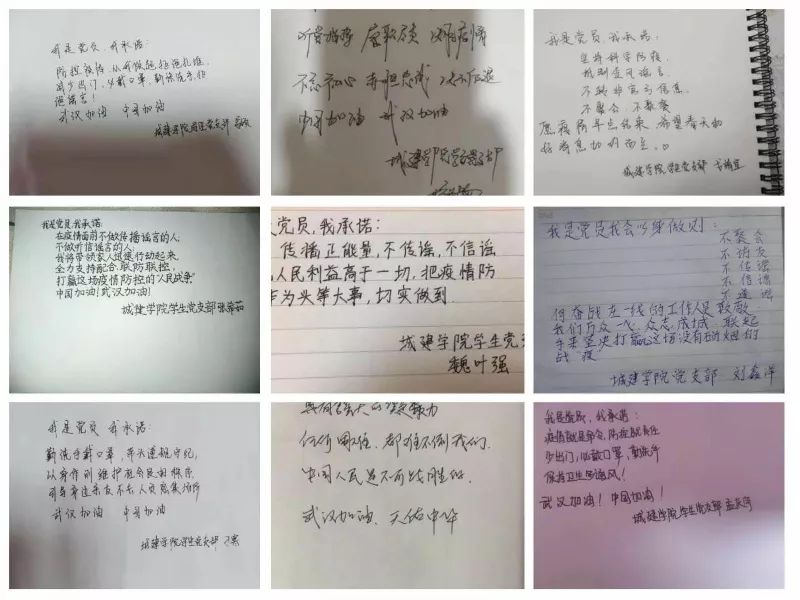 我是党员,我承诺:
防控疫情,从我做起,拒绝扎堆,
减少出门,必戴口罩,勤快洗手,拒
绝谣言!
武汉加油 中国加油
听党指挥
不忘初心 牢记
中国加油 武汉加油
城建学院学生党支部
我是党员,我承诺:
坚持科学防疫
不聚会,不聚餐
城建学院学生党支部
我是党员,我承诺:
在疫情面前不做传播谣言的人;
不做听信谣言的人;
我将带领家人迅速行动起来,
全力支持配合,联防联控,
打赢这场疫情防控的“人民战争”
中国加油!武汉加油!
城建学院学生党支部 张
党员,我承诺:
传播正能量,不传谣,不信谣
人民利益高于一切,把疫情防
作为头等大事,切实做到
城建学院学生党
魏叶强
我是党员我会以身做则:
不聚会
不访友
不传谣
不信谣
不造谣
向奋战在一线的工作人员致敬
我们万众一心,众志成城,联起
手来坚决打赢这场没有硝烟的
战疫
城建学院党支部 刘鑫洋
我是党员 我承诺:
勤洗手戴口罩,
以身作则维护社会良好秩序
武汉加油 中国加油
城建学院学生党支部
任何困难,都难不倒我们.
中国人民是不可战胜的.
武汉加油、天佑中华
我是党员,我承诺:
疫情就是命令,防控就是责任
少出门,必戴口罩,勤洗手
保持卫生勤通风!
武汉加油!中国加油!
城建学院学生党支部